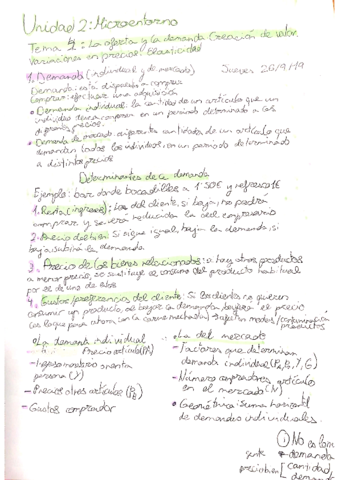 Unidad 2: Microentorno
Tema 4: La oferta y la demanda. Creación de valor.
Variaciones en precios. Elasticidad
1. Demanda (individual y de mercado) Jueves 26/9/19
Demanda: está dispuesto a comprar
Comprar: efectuar una adquisición
• Demanda individual: la cantidad de un artículo que un
individuo desea comprar en un período determinado a
diferentes precios.
• Demanda de mercado: cantidades de un artículo que
demandan todos los individuos, en un período determinado
a distintos precios
Determinantes de la demanda
Ejemplo: bar donde bocadillos a 1'50€ y refresco 1€
1. Renta (ingresos): los del cliente, si baja, no podrá
comprar y se verá reducida la del empresario
2. Precio del bien: si sigue igual, baja la demanda, si
baja, subirá la demanda.
3. Precio de los bienes relacionados: si hay otros productos
a menor precio, se sustituye el consumo del producto habitual
por el de uno de ellos
4. Gustos/preferencias del cliente: Si los clientes no quieren
consumir un producto, se bajará la demanda y bajará el precio
productos
• La demanda individual
• La del mercado
Precio artículo (PA)
- Factores que determinan
demanda individual
- Ingreso monetario
persona (Y)
- Número compradores artículo
en el mercado (N)
- Precios otros artículos (PB)
• Geométrica: suma horizontal
de demandas individuales.
- Gustos comprador
① No es lo
demanda
cantidad
demanda